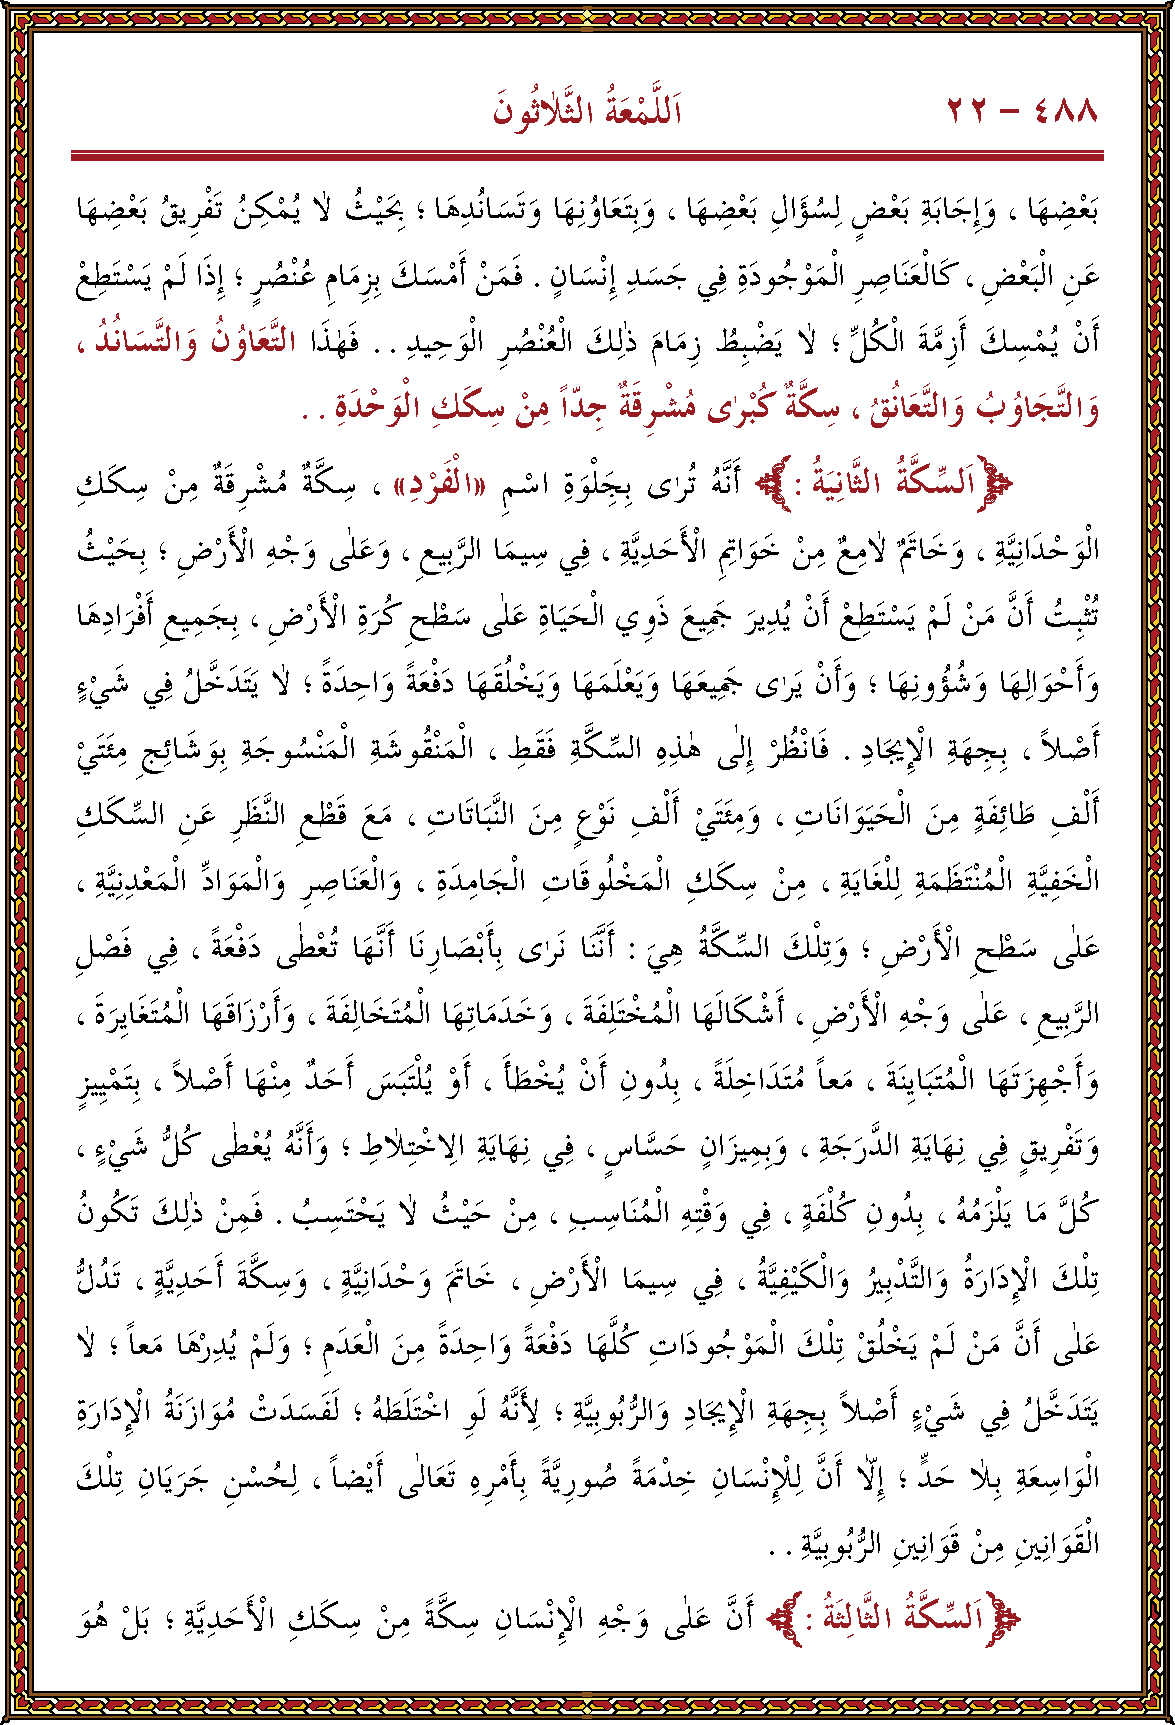 ٤٨٨ – ٢٢ اَللَّمْعَةُ الثَّلَاثُونَ
بَعْضِهَا ، وَإِجَابَةِ بَعْضٍ لِسُؤَالِ بَعْضِهَا ، وَبِتَعَاوُنِهَا وَتَسَانُدِهَا ؛ بِحَيْثُ لَا يُمْكِنُ تَفْرِيقُ بَعْضِهَا
عَنِ الْبَعْضِ ، كَالْعَنَاصِرِ الْمَوْجُودَةِ فِي جَسَدِ إِنْسَانٍ . فَمَنْ أَمْسَكَ بِزِمَامِ عُنْصُرٍ ؛ إِذَا لَمْ يَسْتَطِعْ
أَنْ يُمْسِكَ أَزِمَّةَ الْكُلِّ ؛ لَا يَضْبِطُ زِمَامَ ذٰلِكَ الْعُنْصُرِ الْوَحِيدِ . . فَهٰذَا التَّعَاوُنُ وَالتَّسَانُدُ ،
وَالتَّجَاوُبُ وَالتَّعَانُقُ ، سِكَّةٌ كُبْرٰى مُشْرِقَةٌ جِدّاً مِنْ سِكَكِ الْوَحْدَةِ . .
﴿اَلسِّكَّةُ الثَّانِيَةُ :﴾ أَنَّهُ تُرٰى بِجَلْوَةِ اسْمِ «الْفَرْدِ» ، سِكَّةٌ مُشْرِقَةٌ مِنْ سِكَكِ
الْوَحْدَانِيَّةِ ، وَخَاتَمٌ لَامِعٌ مِنْ خَوَاتِمِ الْأَحَدِيَّةِ ، فِي سِيمَا الرَّبِيعِ ، وَعَلٰى وَجْهِ الْأَرْضِ ؛ بِحَيْثُ
تُثْبِتُ أَنَّ مَنْ لَمْ يَسْتَطِعْ أَنْ يُدِيرَ جَمِيعَ ذَوِي الْحَيَاةِ عَلٰى سَطْحِ كُرَةِ الْأَرْضِ ، بِجَمِيعِ أَفْرَادِهَا
وَأَحْوَالِهَا وَشُؤُونِهَا ؛ وَأَنْ يَرٰى جَمِيعَهَا وَيَعْلَمَهَا وَيَخْلُقَهَا دَفْعَةً وَاحِدَةً ؛ لَا يَتَدَخَّلُ فِي شَيْءٍ
أَصْلاً ، بِجِهَةِ الْإِيجَادِ . فَانْظُرْ إِلٰى هٰذِهِ السِّكَّةِ فَقَطِ ، الْمَنْقُوشَةِ الْمَنْسُوجَةِ بِوَشَائِجِ مِئَتَيْ
أَلْفِ طَائِفَةٍ مِنَ الْحَيَوَانَاتِ ، وَمِئَتَيْ أَلْفِ نَوْعٍ مِنَ النَّبَاتَاتِ ، مَعَ قَطْعِ النَّظَرِ عَنِ السِّكَكِ
الْخَفِيَّةِ الْمُنْتَظَمَةِ لِلْغَايَةِ ، مِنْ سِكَكِ الْمَخْلُوقَاتِ الْجَامِدَةِ ، وَالْعَنَاصِرِ وَالْمَوَادِّ الْمَعْدِنِيَّةِ ،
عَلٰى سَطْحِ الْأَرْضِ ؛ وَتِلْكَ السِّكَّةُ هِيَ : أَنَّنَا نَرٰى بِأَبْصَارِنَا أَنَّهَا تُعْطٰى دَفْعَةً ، فِي فَصْلِ
الرَّبِيعِ ، عَلٰى وَجْهِ الْأَرْضِ ، أَشْكَالَهَا الْمُخْتَلِفَةَ ، وَخَدَمَاتِهَا الْمُتَخَالِفَةَ ، وَأَرْزَاقَهَا الْمُتَغَايِرَةَ ،
وَأَجْهِزَتَهَا الْمُتَبَايِنَةَ ، مَعاً مُتَدَاخِلَةً ، بِدُونِ أَنْ يُخْطَأَ ، أَوْ يُلْتَبَسَ أَحَدٌ مِنْهَا أَصْلاً ، بِتَمْيِيزٍ
وَتَفْرِيقٍ فِي نِهَايَةِ الدَّرَجَةِ ، وَبِمِيزَانٍ حَسَّاسٍ ، فِي نِهَايَةِ الِاخْتِلَاطِ ؛ وَأَنَّهُ يُعْطٰى كُلُّ شَيْءٍ ،
كُلَّ مَا يَلْزَمُهُ ، بِدُونِ كُلْفَةٍ ، فِي وَقْتِهِ الْمُنَاسِبِ ، مِنْ حَيْثُ لَا يَحْتَسِبُ . فَمِنْ ذٰلِكَ تَكُونُ
تِلْكَ الْإِدَارَةُ وَالتَّدْبِيرُ وَالْكَيْفِيَّةُ ، فِي سِيمَا الْأَرْضِ ، خَاتَمَ وَحْدَانِيَّةٍ ، وَسِكَّةَ أَحَدِيَّةٍ ، تَدُلُّ
عَلٰى أَنَّ مَنْ لَمْ يَخْلُقْ تِلْكَ الْمَوْجُودَاتِ كُلَّهَا دَفْعَةً وَاحِدَةً مِنَ الْعَدَمِ ؛ وَلَمْ يُدِرْهَا مَعاً ؛ لَا
يَتَدَخَّلُ فِي شَيْءٍ أَصْلاً بِجِهَةِ الْإِيجَادِ وَالرُّبُوبِيَّةِ ؛ لِأَنَّهُ لَوِ اخْتَلَطَهُ ؛ لَفَسَدَتْ مُوَازَنَةُ الْإِدَارَةِ
الْوَاسِعَةِ بِلَا حَدٍّ ؛ إِلَّا أَنَّ لِلْإِنْسَانِ خِدْمَةً صُورِيَّةً بِأَمْرِهِ تَعَالٰى أَيْضاً ، لِحُسْنِ جَرَيَانِ تِلْكَ
الْقَوَانِينِ مِنْ قَوَانِينِ الرُّبُوبِيَّةِ . .
﴿اَلسِّكَّةُ الثَّالِثَةُ :﴾ أَنَّ عَلٰى وَجْهِ الْإِنْسَانِ سِكَّةً مِنْ سِكَكِ الْأَحَدِيَّةِ ؛ بَلْ هُوَ